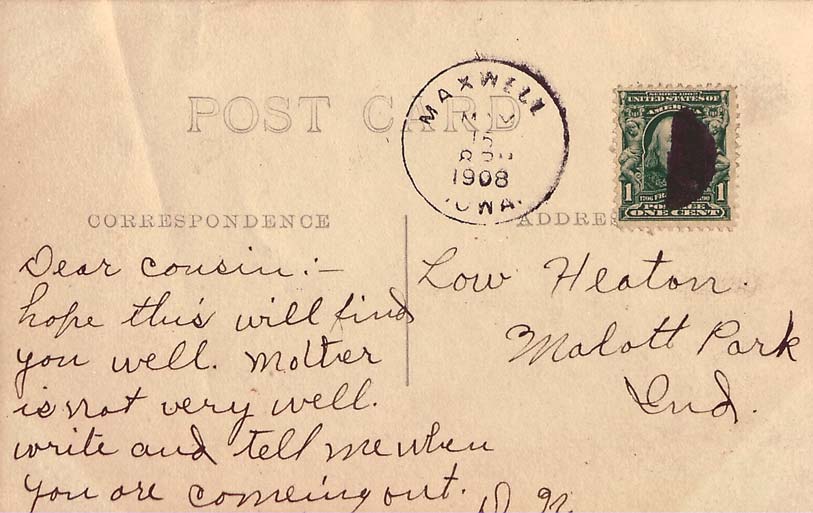 POST CARD
MAXWELL
1908
IOWA.
SERIES 1902
UNITED STATES OF
AMERICA
1 1
POSTAGE
ONE CENT
CORRESPONDENCE
ADDRES
Dear cousin:-
hope this will find
you well. Mother
is not very well.
write and tell me when
you are comeing out.
Low Heaton.
Malott Park
Ind.